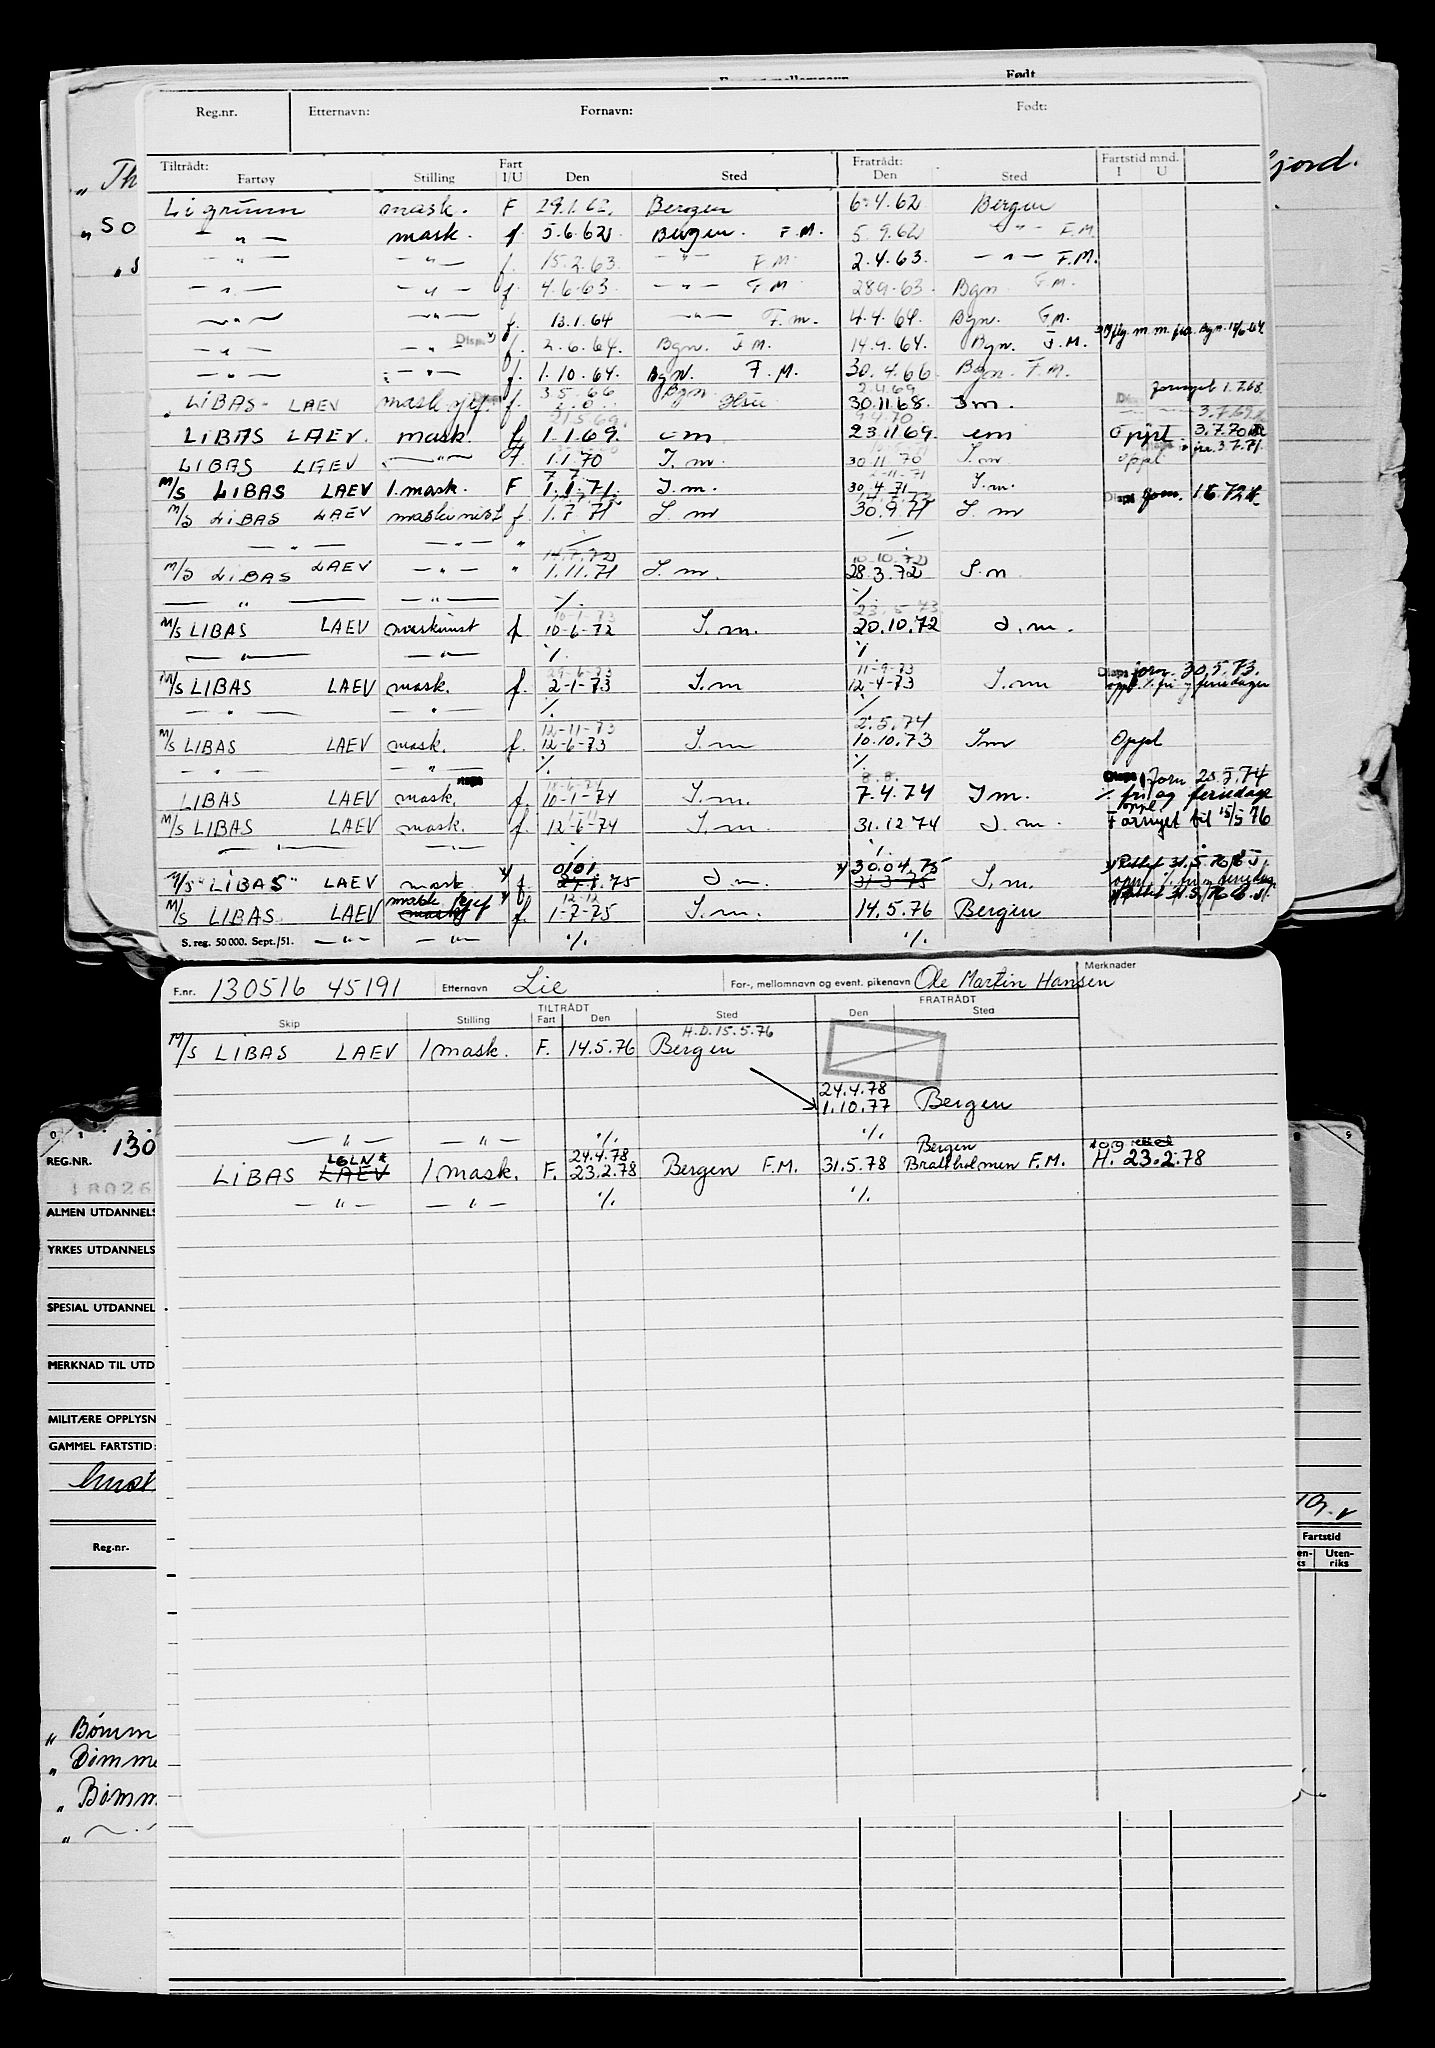 Født
Reg.nr. Etternavn: Fornavn: Født:
Tiltrådt: Fart Fratrådt: Fartstid mnd.
Fartøy Stilling I/U Den Sted Den Sted I U
"Th
jord.
"So
Ligrunn mask. F 29.1.62. Bergen 6.4.62 Bergen
— " — mask. f 5.6.62 Bergen. F.M. 5.9.62 — " — F.M.
— " — — " — f. 15.2.63. — " — F.M. 2.4.63. — " — F.M.
— " — — " — f 4.6.63 — " — F.M. 28.9.63. Bgn F.M.
— " — — " — f. 13.1.64 — " — F.m. 4.4.64. Bgn. F.M.
— " — — " — f. 2.6.64. Bgn. F.M. 14.9.64. Bgn. F.M.
— " — — " — f. 1.10.64. Bgn. F.M. 30.4.66 Bgn. F.M.
2.4.69
"LIBAS- LAEV masksjef. f. 3.5.66 Bgn 30.11.68. Im. fornyet 1.7.68.
21.5.69. 9.4.70 3.7.69
LIBAS LAEV. mask. f. 1.1.69. em 23.11.69. em Oppl 3.7.70
LIBAS LAEV — " — f. 1.1.70 I.m. 30.11.70 I.m Oppl 3.7.71.
M/S LIBAS LAEV 1.mask. F 1.1.71. I.m. 30.4.71 I.m. Disp forn. 1.6.72
M/S LIBAS LAEV maskinist f. 1.7.71 I.m 30.9.71 I.m
— " — — " — " ./. ./.
14.7.72 10.10.72
M/S LIBAS LAEV — " — " 1.11.71 I.m. 28.3.72 I.m
— " — — " — ./. ./.
10-1-73 23.5.73.
M/S LIBAS LAEV maskinist f 10-6-72 I.m. 20.10.72 I.m.
— " — — " — ./. ./.
29-6-73 11-9-73 Disp forn. 30.5.73.
M/S LIBAS LAEV mask. f. 2-1-73 I.m 12-4-73 I.m oppl. ./. fri og feriedager
— " — — " — ./. ./.
12-11-73 2.5.74
M/S LIBAS LAEV mask. f. 12-6-73 I.m 10.10.73 Im Oppl
— " — — " — ./. ./.
8.8. Disp forn 20.5.74
LIBAS LAEV mask. f. 10-1-74 I.m. 7.4.74 Im. ./. fri og feriedage
oppl
M/S LIBAS LAEV mask. f. 12-6-74 I.m. 31.12 74 I.m. Fornyet til 15/5 76
— " — — " — ./. ./.
0101. 30.04.75
M/S "LIBAS" LAEV mask f. 27.1.75 I.m. 31.3.75 I.m.
mask sjef 12-12
M/S LIBAS LAEV maskf f. 1-7-75 I.m. 14.5.76 Bergen
S. reg. 50 000. Sept./51. — " — — " — ./. ./.
F.nr. 130516 45191 Etternavn Lie For-, mellomnavn og event. pikenavn Ole Martin Hansen Merknader
TILTRÅDT FRATRÅDT
Skip Stilling Fart Den Sted Den Sted
H.D. 15.5.76
M/S LIBAS LAEV 1 mask. F. 14.5.76 Bergen
24.4.78
1.10.77 Bergen
— " — — " — ./. ./.
LGLN 24.4.78 Bergen
LIBAS LAEV 1 mask. F. 23.2.78 Bergen F.M. 31.5.78 Brattholmen F.M. H. 23.2.78
— " — — " — ./. ./.
REG.NR. 130
18026
ALMEN UTDANNELS
YRKES UTDANNELS
SPESIAL UTDANNEL
MERKNAD TIL UTD
MILITÆRE OPPLYSN
GAMMEL FARTSTID:
Reg.nr.
Fartstid
Uten-
riks
" Bømm
" Bømme
" Bømm